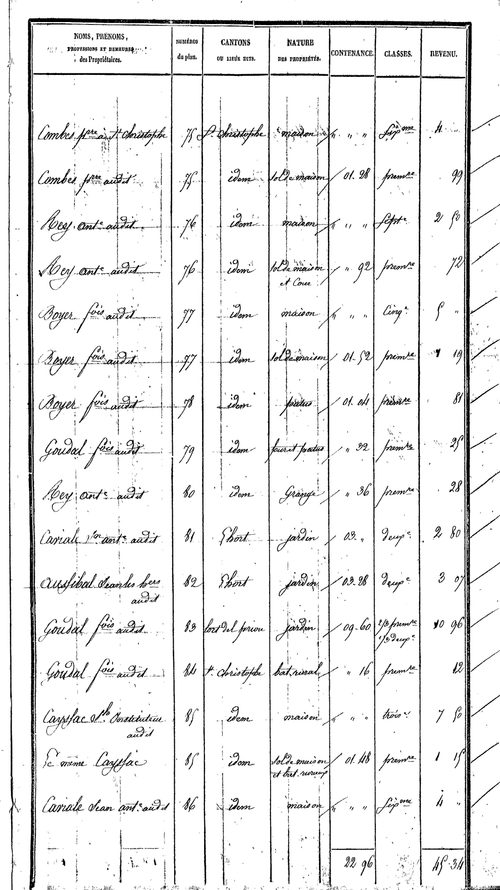 NOMS, PRÉNOMS, PROFESSIONS ET DEMEURES des Propriétaires. NUMÉROS du plan. CANTONS OU LIEUX DITS. NATURE DES PROPRIÉTÉS. CONTENANCE. CLASSES. REVENU.
Combes pre à St Christophe 75 St Christophe maison " " " sixme 4
Combes pre audit 75 idem sol de maison 01.28 premre 99
Rey ante audit 76 idem maison " " " Septe 2 50
Rey ante audit 76 idem sol de maison et Cour " 92 premre 72
Boyer fois audit 77 idem maison " " " Cinqe 5 "
Boyer fois audit 77 idem sol de maison 01.52 premre 1 19
Boyer fois audit 78 idem patus 01.04 premre 81
Goudal fois audit 79 idem four et patus " 32 premre 25
Rey ante audit 80 idem Grange " 36 premre 28
Canale ante audit 81 jardin 03. " deuxe 2 80
Jean les hers audit 82 jardin 03.28 deuxe 3 07
Goudal fois audit 83 jardin 09.60 2/3 premre 1/3 deuxe 10 96
Goudal fois audit 84 St Christophe bat. rural " 16 premre 12
Cayssac audit 85 idem maison " " troise 7 50
Le même Cayssac 85 idem sol de maison et bat. ruraux 01.48 premre 1 15
Canale Jean ante audit 86 idem maison " " " sixme 4 "
22 96 45 34